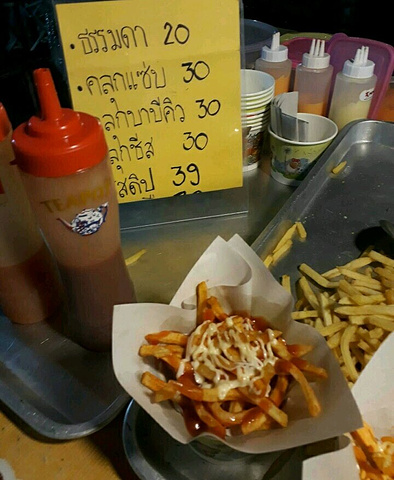 • ธรรมดา 20
• คลุกแซ่บ 30
ลุกบาบีคิว 30
ลุกชีส 30
สดิป 39